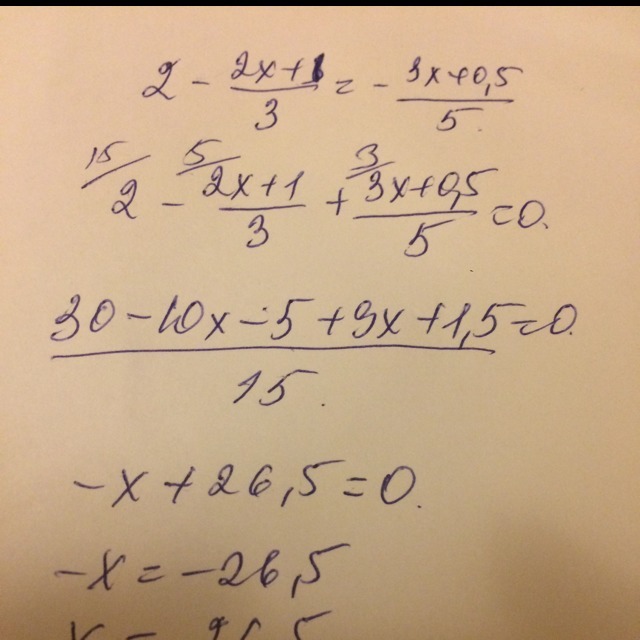 2 - (2x+1)/3 = - (3x+0,5)/5
15/ 2 - 5/ (2x+1)/3 + 3/ (3x+0,5)/5 = 0.
(30-10x-5+9x+1,5)/15 = 0.
-x+26,5=0.
-x=-26,5
x = 26,5